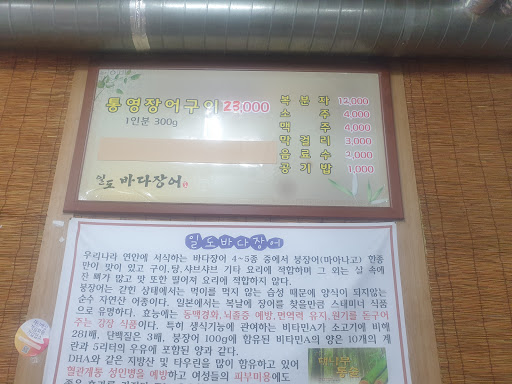 통영장어구이 23,000
1인분 300g
복분자 12,000
소주 4,000
맥주 4,000
막걸리 3,000
음료수 2,000
공기밥 1,000
일도 바다장어
일도바다장어
우리나라 연안에 서식하는 바다장어 4~5종 중에서 붕장어(마아나고) 한종
만이 맛이 있고 구이,탕,샤브샤브 기타 요리에 적합하며 그 외는 살 속에
잔 뼈가 많고 맛 또한 떨어져 요리에 적합하지 않다.
붕장어는 갇힌 상태에서는 먹이를 먹지 않는 습성 때문에 양식이 되지않는
순수 자연산 어종이다. 일본에서는 복날에 장어를 찾을만큼 스태미너 식품
으로 유명하다. 효능에는 동맥경화,뇌졸증 예방,면역력 유지,원기를 돋구어
주는 강장 식품이다. 특히 생식기능에 관여하는 비타민A가 소고기에 비해
281배, 단백질은 3배, 붕장어 100g에 함유된 비타민A의 양은 10개의 계
란과 5리터의 우유에 포함된 양과 같다.
DHA와 같은 지방산 및 타우린을 많이 함유하고 있어
혈관계통 성인병을 예방하고 여성들의 피부미용에도
대나무